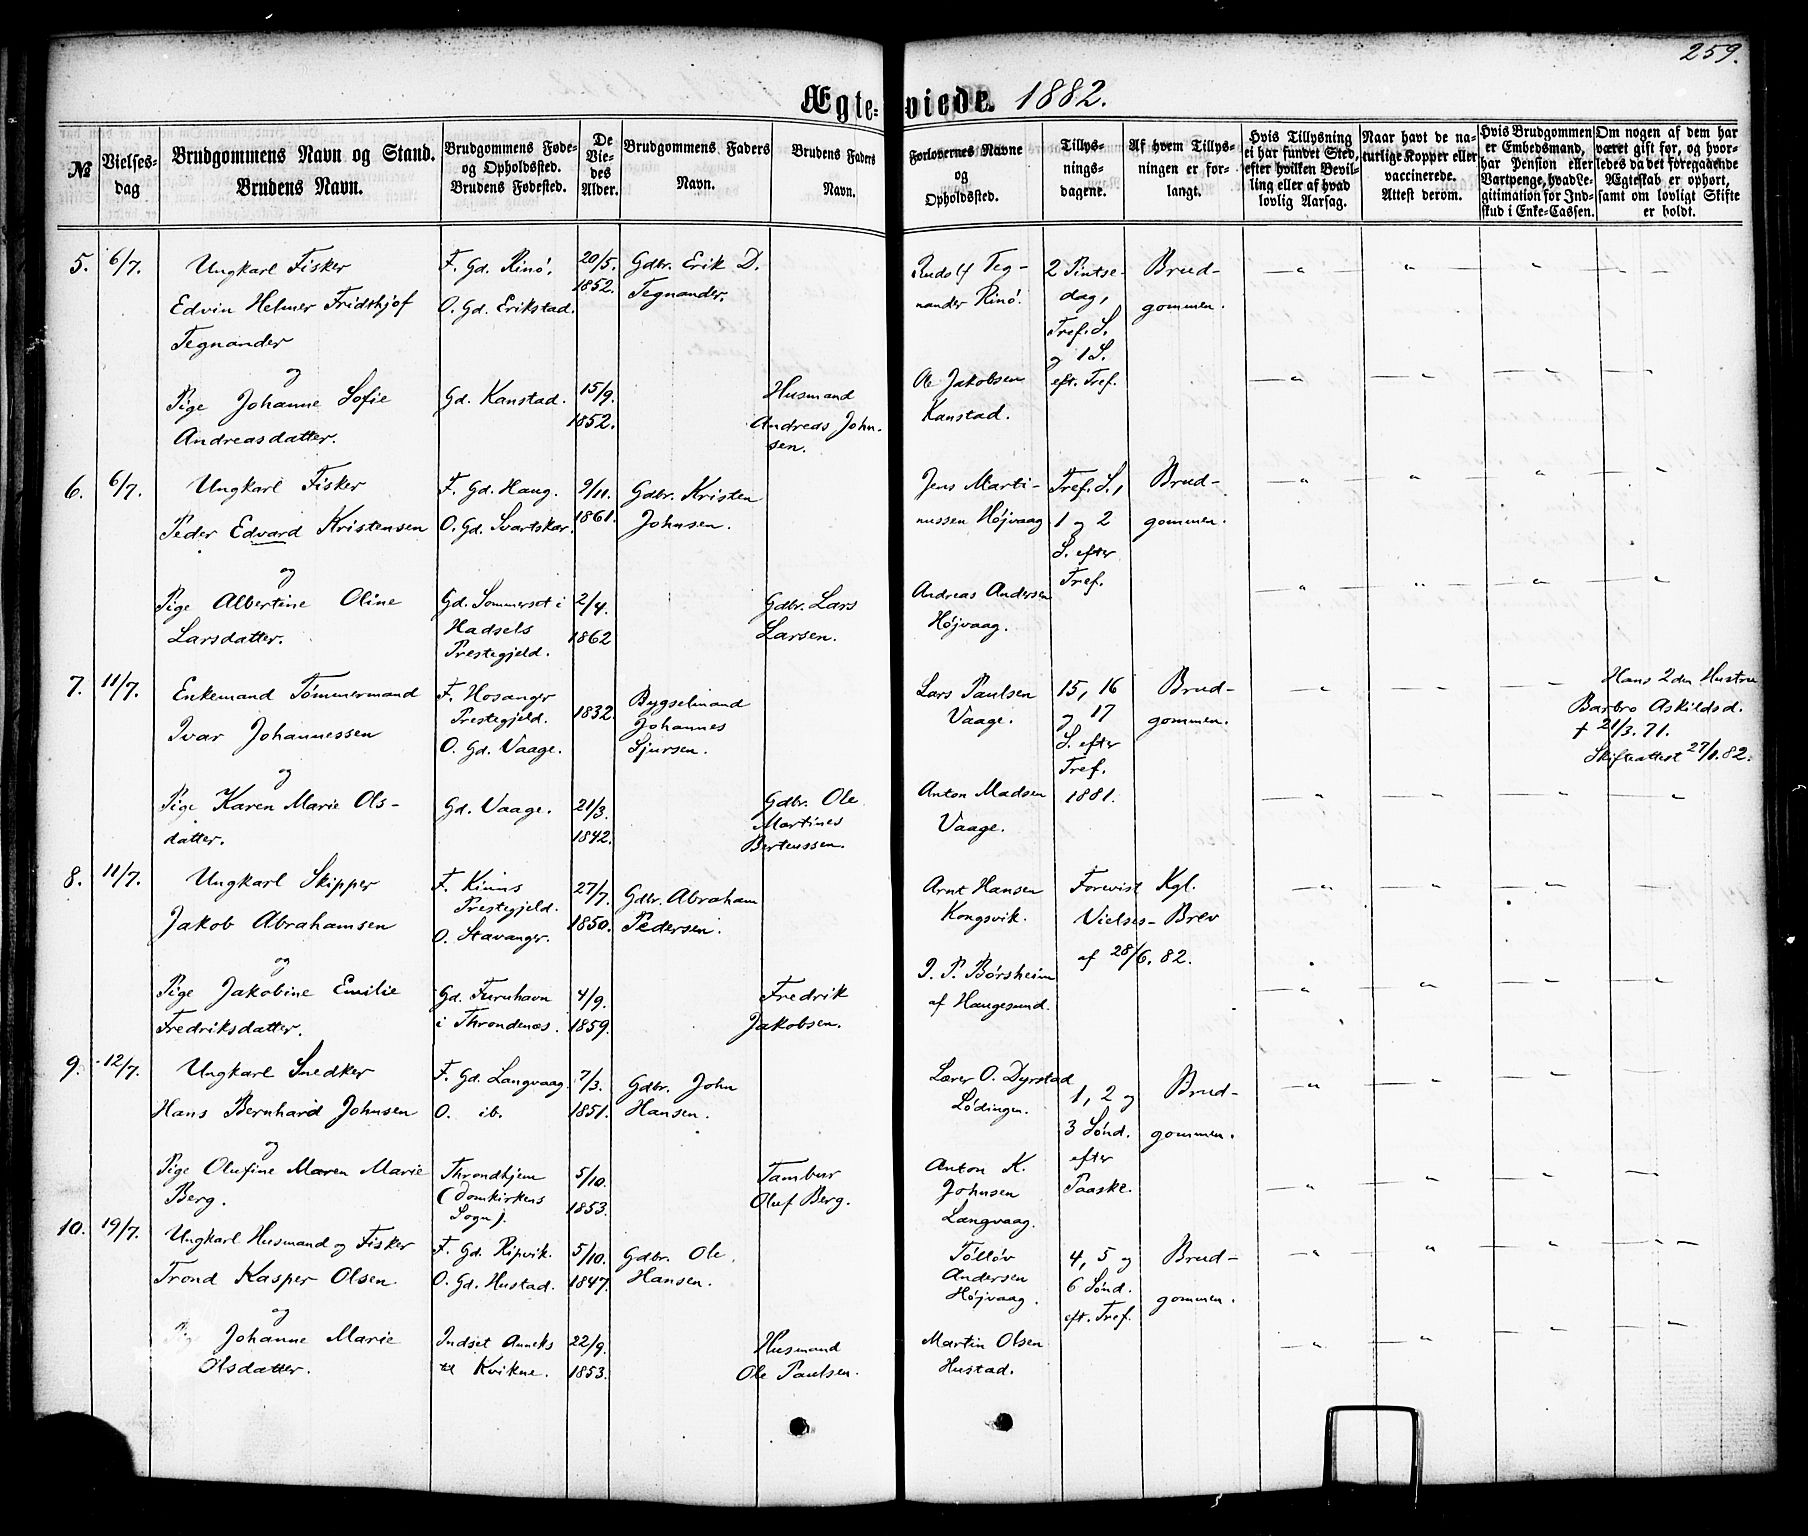 259.
Ægteviede 1882.
№
Vielses-
dag
Brudgommens Navn og Stand.
Brudens Navn.
Brudgommens Føde-
og Opholdssted.
Brudens Fødested.
De
Vie-
des
Alder.
Brudgommens Faders
Navn.
Brudens Faders
Navn.
Forlovernes Navne
og
Opholdssted.
Tillys-
nings-
dagene.
Af hvem Tillys-
ningen er for-
langt.
Hvis Tillysning
ei har fundet Sted,
efter hvilken Bevil-
ling eller af hvad
lovlig Aarsag.
Naar havt de na-
turlige Kopper eller
vaccinerede.
Attest derom.
Hvis Brudgommen
er Embedsmand,
har Pension eller
Vartpenge, hvad Le-
gitimation for Ind-
skud i Enke-Cassen.
Om nogen af dem har
været gift før, og hvor-
ledes da det foregaaende
Ægteskab er ophørt,
samt om lovligt Skifte
er holdt.
5. 6/7.
Ungkarl Fisker
Edvin Helmer Fridthjof
Tegnander
og
Pige Johanne Sofie
Andreasdatter.
F. Gd. Rinø.
O. Gd. Erikstad.
Gd. Kanstad.
20/5.
1852.
15/9.
1852.
Gdbr. Erik D.
Tegnander.
Husmand
Andreas John-
sen.
Rudolf Teg-
nander Rinø.
Ole Jakobsen
Kanstad.
2 Pintse-
dag,
Tref. S.
og 1 S.
eft. Tref.
Brud-
gommen.
6. 6/7.
Ungkarl Fisker
Peder Edvard Kristensen
og
Pige Albertine Oline
Larsdatter.
F. Gd. Haug.
O. Gd. Svartskar.
Gd. Sommerset i
Hadsels
Prestegjeld.
9/11.
1861.
2/4.
1862
Gdbr. Kristen
Johnsen.
Gdbr. Lars
Larsen.
Jens Marti-
nussen Højvaag
Andreas Andersen
Højvaag.
Tref. S.,
1 og 2
S. efter
Tref.
Brud-
gommen.
7. 11/7.
Enkemand Tømmermand
Ivar Johannessen
og
Pige Karen Marie Ols-
datter.
F. Hosanger
Prestegjeld.
O. Gd. Vaage.
Gd. Vaage.
1832.
21/3.
1842.
Bygselmand
Johannes
Sjursen.
Gdbr. Ole
Martines
Bertenssen.
Lars Paulsen
Vaage.
Anton Madsen
Vaage.
15, 16
og 17
S. efter
Tref.
1881.
Brud-
gommen.
Hans 2den Hustru
Barbro Askildsd.
† 21/3. 71.
Skifteattest 27/1. 82.
8. 11/7.
Ungkarl Skipper
Jakob Abrahamsen
og
Pige Jakobine Emilie
Fredriksdatter.
F. Kinns
Prestegjeld.
O. Stavanger.
Gd. Furuhavn
i Throndenæs.
27/7.
1850.
4/9.
1859.
Gdbr. Abraham
Pedersen.
Fredrik
Jakobsen.
Arnt Hansen
Kongsvik.
P. Børsheim
af Haugesund.
Forevist Kgl.
Vielses-Brev
af 28/6. 82.
9. 12/7.
Ungkarl Snedker
Hans Bernhard Johnsen
og
Pige Olufine Maren Marie
Berg.
F. Gd. Langvaag.
O. ib.
Throndhjem
(Domkirkens
Sogn).
7/3.
1851.
5/10.
1853.
Gdbr. John
Hansen.
Tambur
Oluf Berg.
Lærer O. Dyrstad
Lødingen.
Anton K.
Johnsen
Langvaag.
1, 2 og
3 Sønd.
efter
Paaske.
Brud-
gommen.
10. 19/7.
Ungkarl Husmand og Fisker
Trond Kasper Olsen.
og
Pige Johanne Marie
Olsdatter.
F. Gd. Ripvik.
O. Gd. Hustad.
Indset Anneks
til Kvikne.
5/10.
1847.
22/9.
1853.
Gdbr. Ole
Hansen.
Husmand
Ole Paulsen.
Tølløv
Andersen
Højvaag.
Martin Olsen
Hustad.
4, 5 og
6 Sønd.
eft. Tref.
Brud-
gommen.